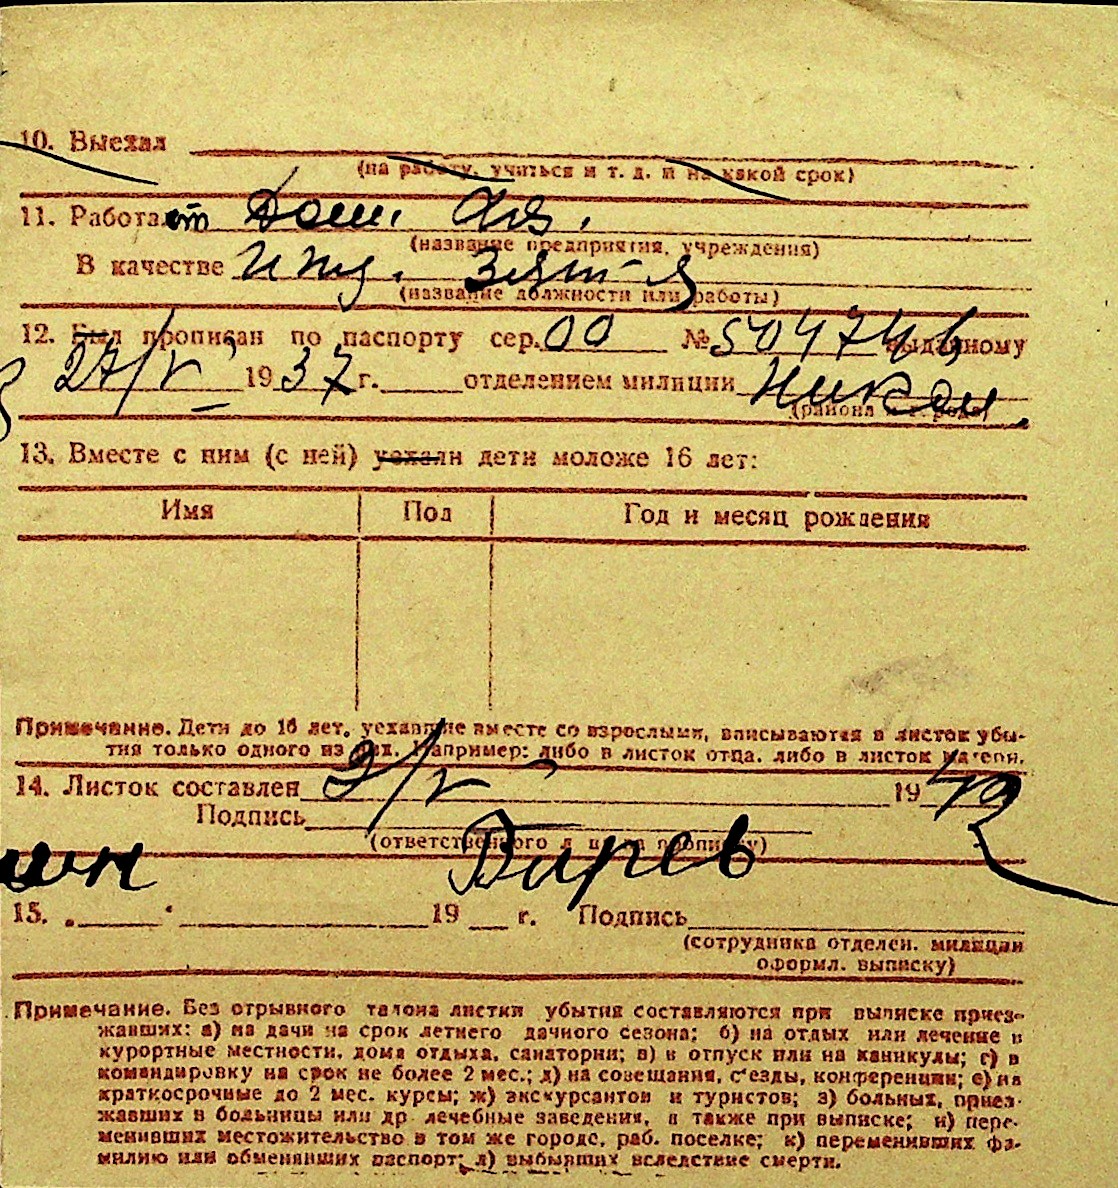 10. Выехал
(на работу, учиться и т. д. и на какой срок)
11. Работает Дом.
(название предприятия, учреждения)
В качестве
(название должности или работы)
12. Был прописан по паспорту сер. 00 № выданному
27/V 1937 г. отделением милиции
(района и города)
13. Вместе с ним (с ней) уехали дети моложе 16 лет:
Имя Пол Год и месяц рождения
Примечание. Дети до 16 лет, уехавшие вместе со взрослыми, вписываются в листок убы-
тия только одного из них. Например: либо в листок отца, либо в листок матери.
14. Листок составлен 2/V 19
Подпись
(ответственного лица за прописку)
15. 19 г. Подпись
(сотрудника отделен. милиции
оформл. выписку)
Примечание. Без отрывного талона листки убытия составляются при выписке приез-
жавших: а) на дачи на срок летнего дачного сезона; б) на отдых или лечение в
курортные местности, дома отдыха, санатории; в) в отпуск или на каникулы; г) в
командировку на срок не более 2 мес.; д) на совещания, съезды, конференции; е) на
краткосрочные до 2 мес. курсы; ж) экскурсантов и туристов; з) больных, приез-
жавших в больницы или др. лечебные заведения, а также при выписке; и) пере-
менивших местожительство в том же городе, раб. поселке; к) переменивших фа-
милию или обменявших паспорт; л) выбывших вследствие смерти.